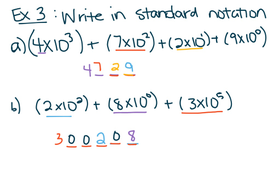 Ex 3: Write in standard notation
a) (4x10³) + (7x10²) + (2x10¹) + (9x10⁰)
4 7 2 9
b) (2x10²) + (8x10⁰) + (3x10⁵)
3 0 0 2 0 8